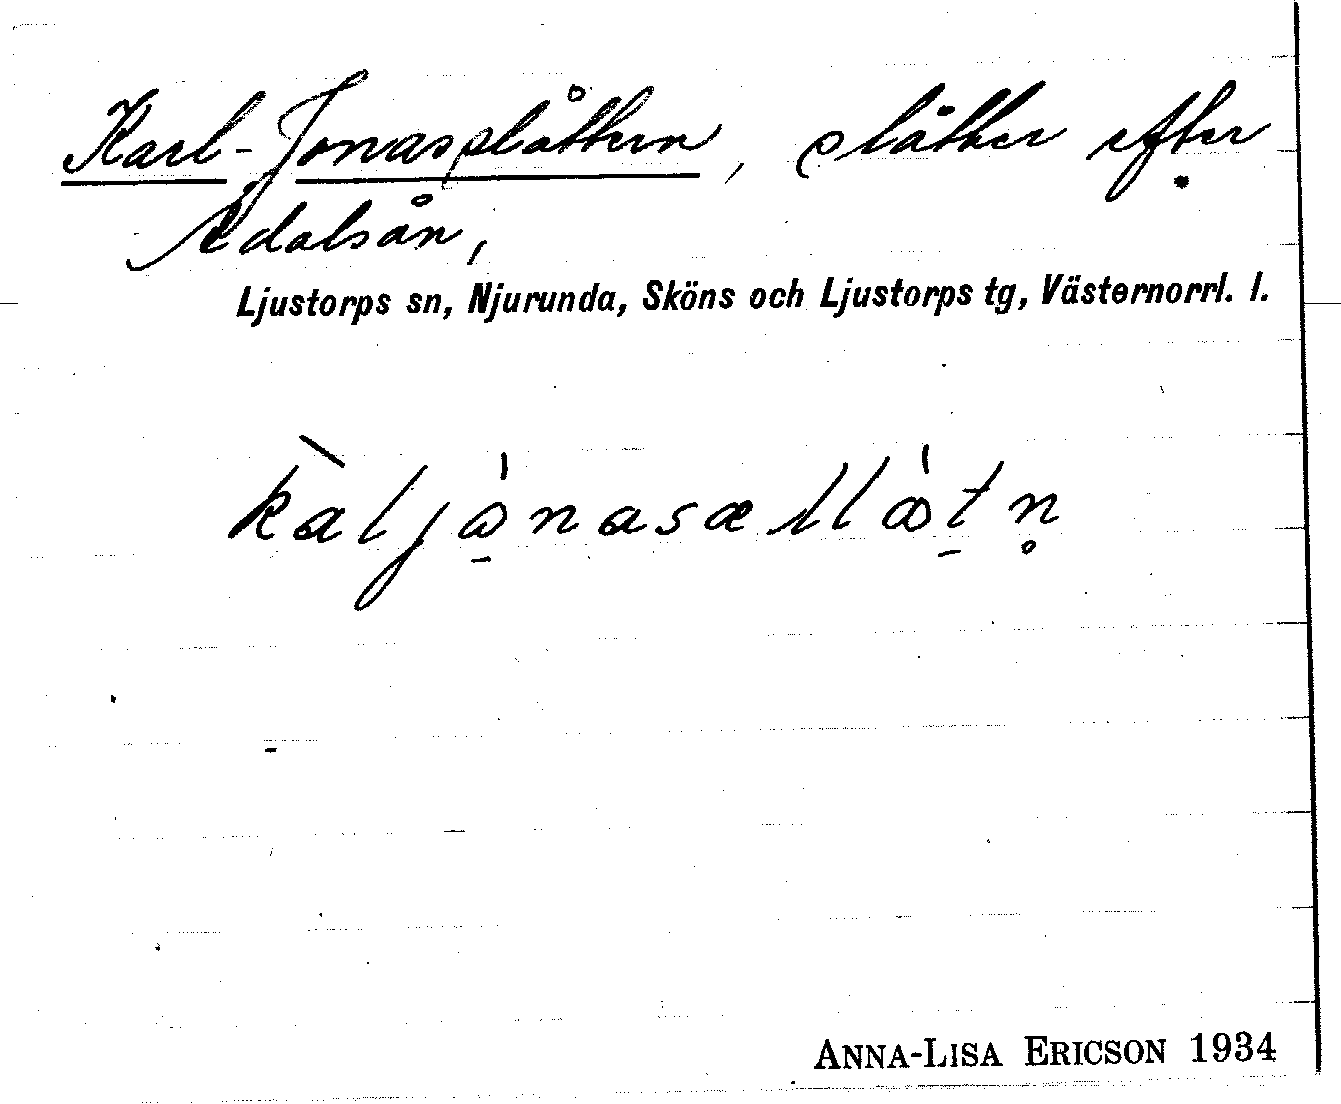 Karl-Jonasslåttern, slåtter efter
Ådalsån,
Ljustorps sn, Njurunda, Sköns och Ljustorps tg, Västernorrl. l.
ANNA-LISA ERICSON 1934